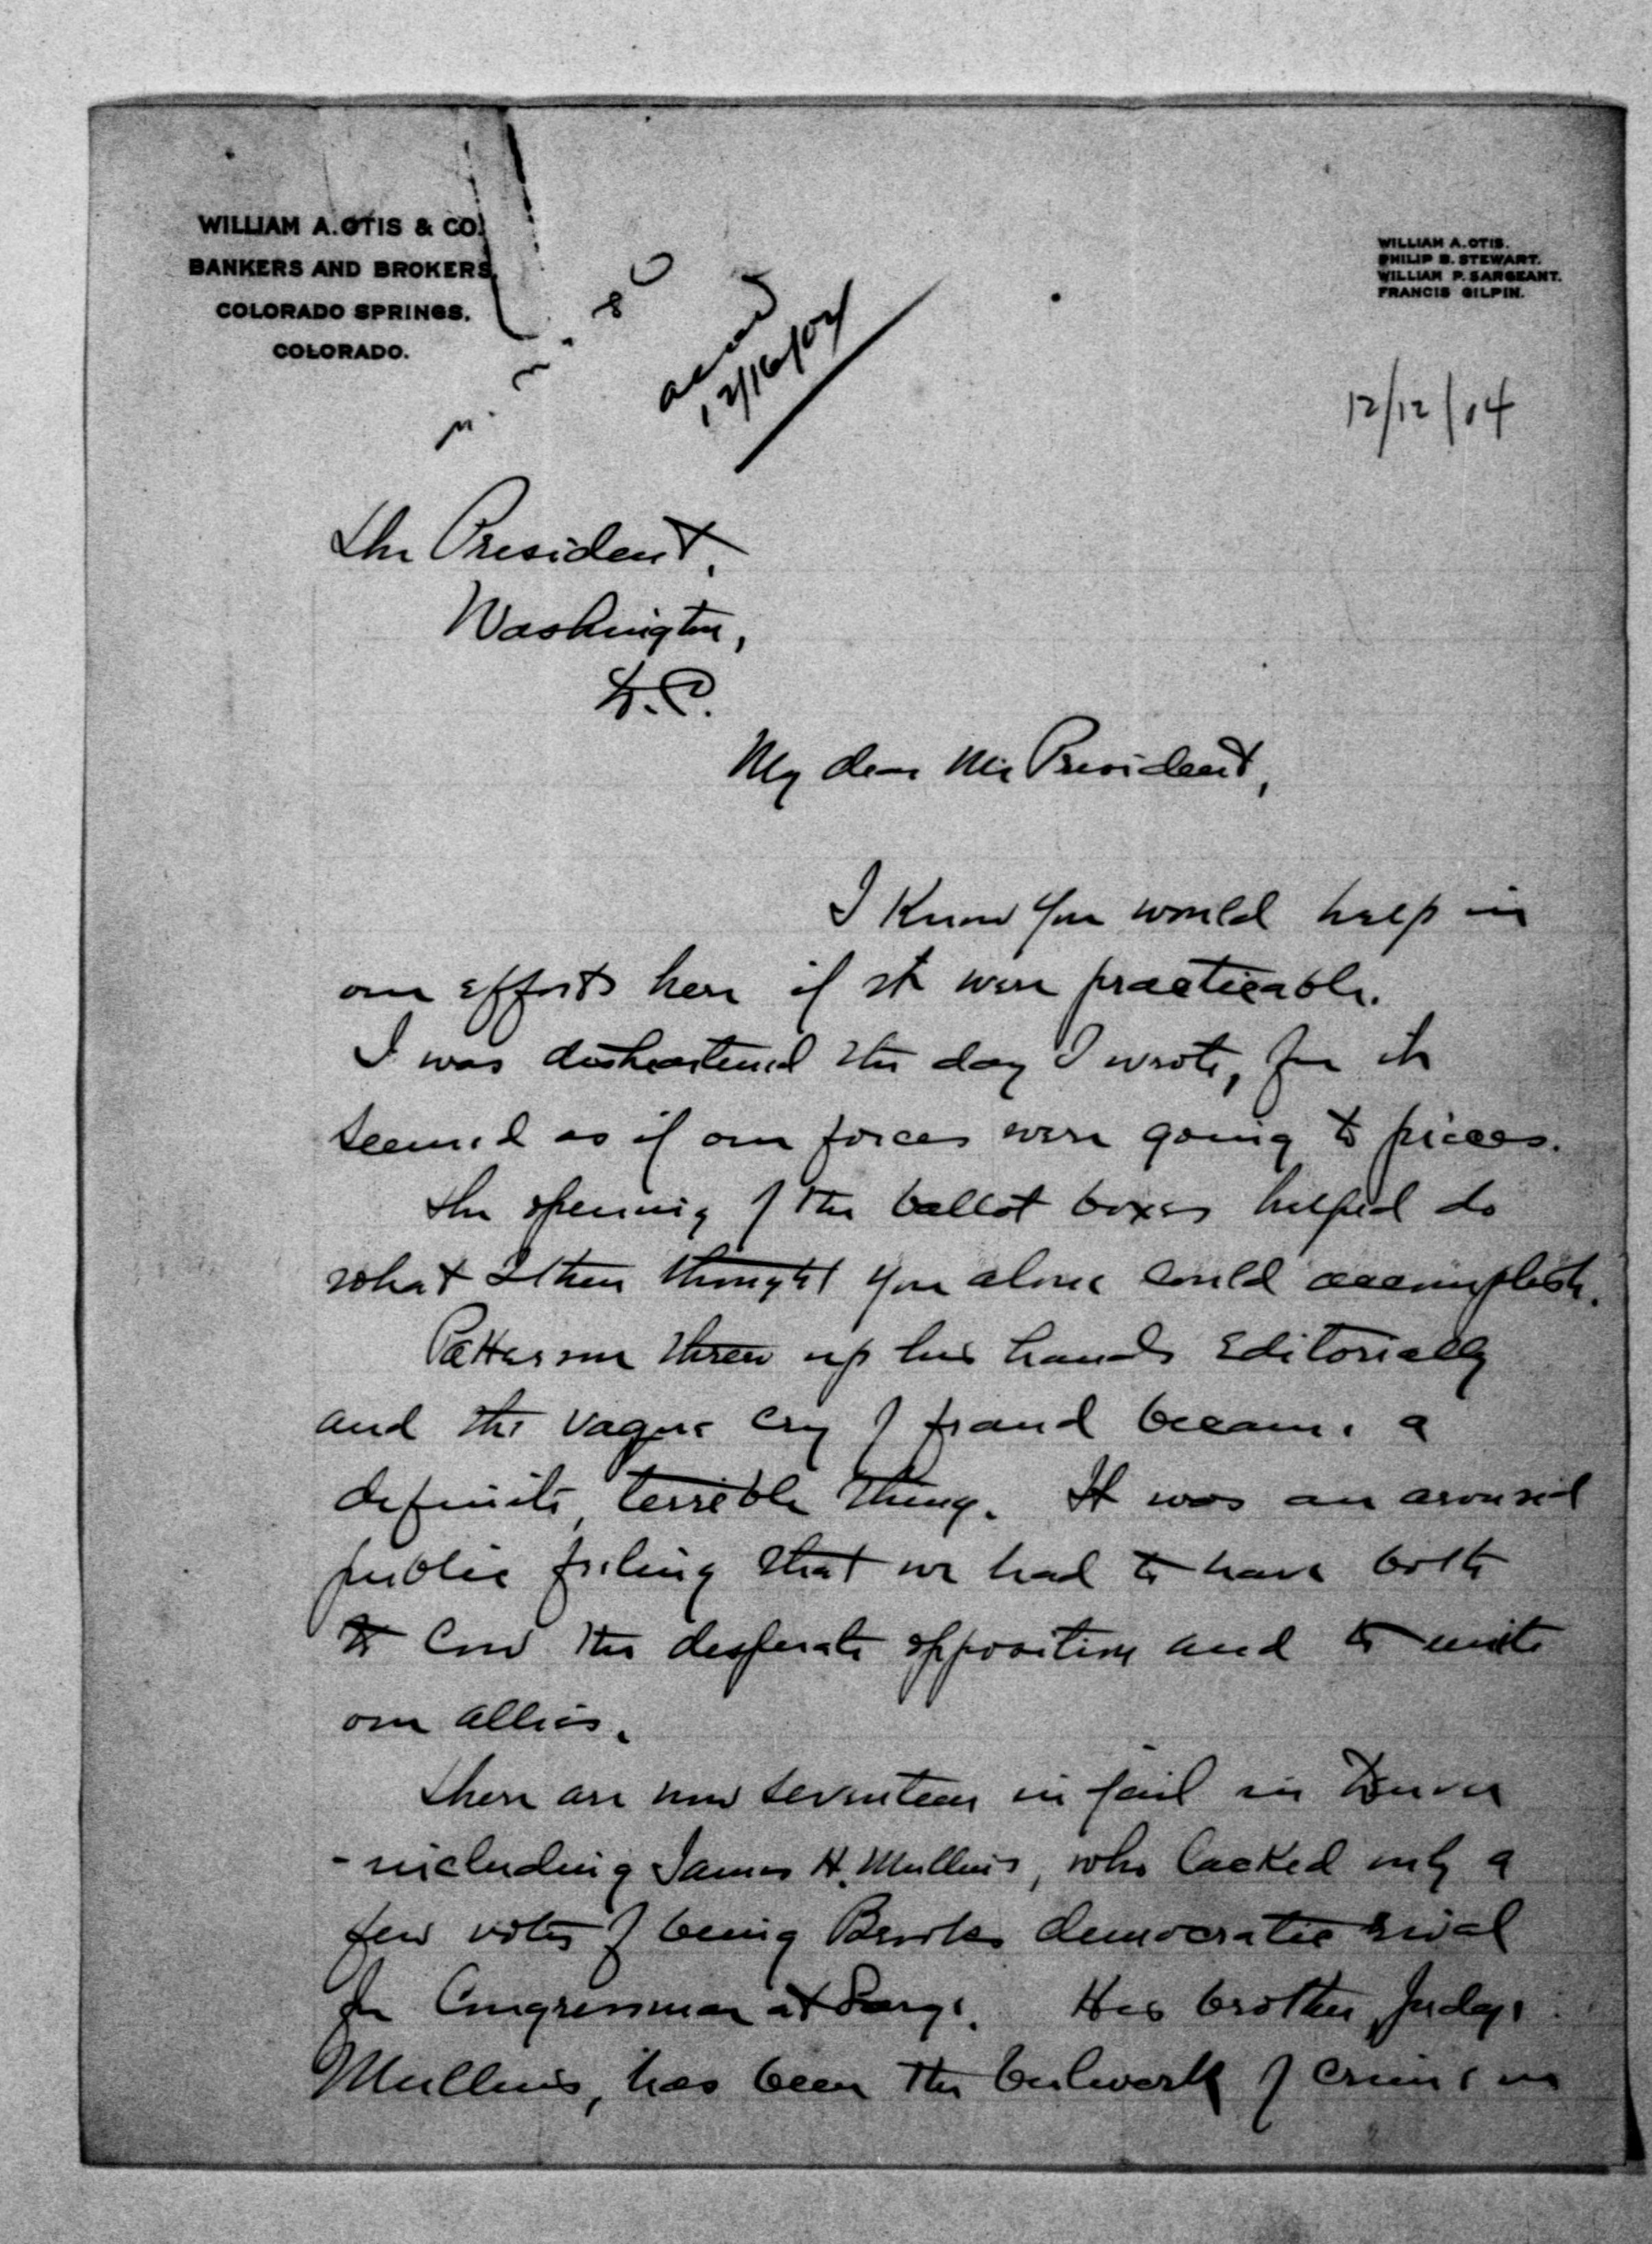 WILLIAM A. OTIS & CO.
BANKERS AND BROKERS,
COLORADO SPRINGS,
COLORADO.
WILLIAM A. OTIS.
PHILIP B. STEWART.
WILLIAM P. SARGEANT.
FRANCIS GILPIN.
12/16/04
12/12/04
The President,
Washington,
D.C.
My dear Mr President,
I know you would help in
our efforts here if it were practicable.
I was disheartened the day I wrote, for it
seemed as if our forces were going to pieces.
The opening of the ballot boxes helped do
what I then thought you alone could accomplish.
Patterson threw up his hands editorially
and the vague cry of fraud became a
definite, terrible thing. It was an aroused
public feeling that we had to have both
to cow the desperate opposition and to unite
our allies.
There are now seventeen in jail in Denver
- including James H. Mullins, who lacked only a
few votes of being Brooks democratic rival
for Congressman at Large. His brother, Judge
Mullins, has been the bulwark of crime in